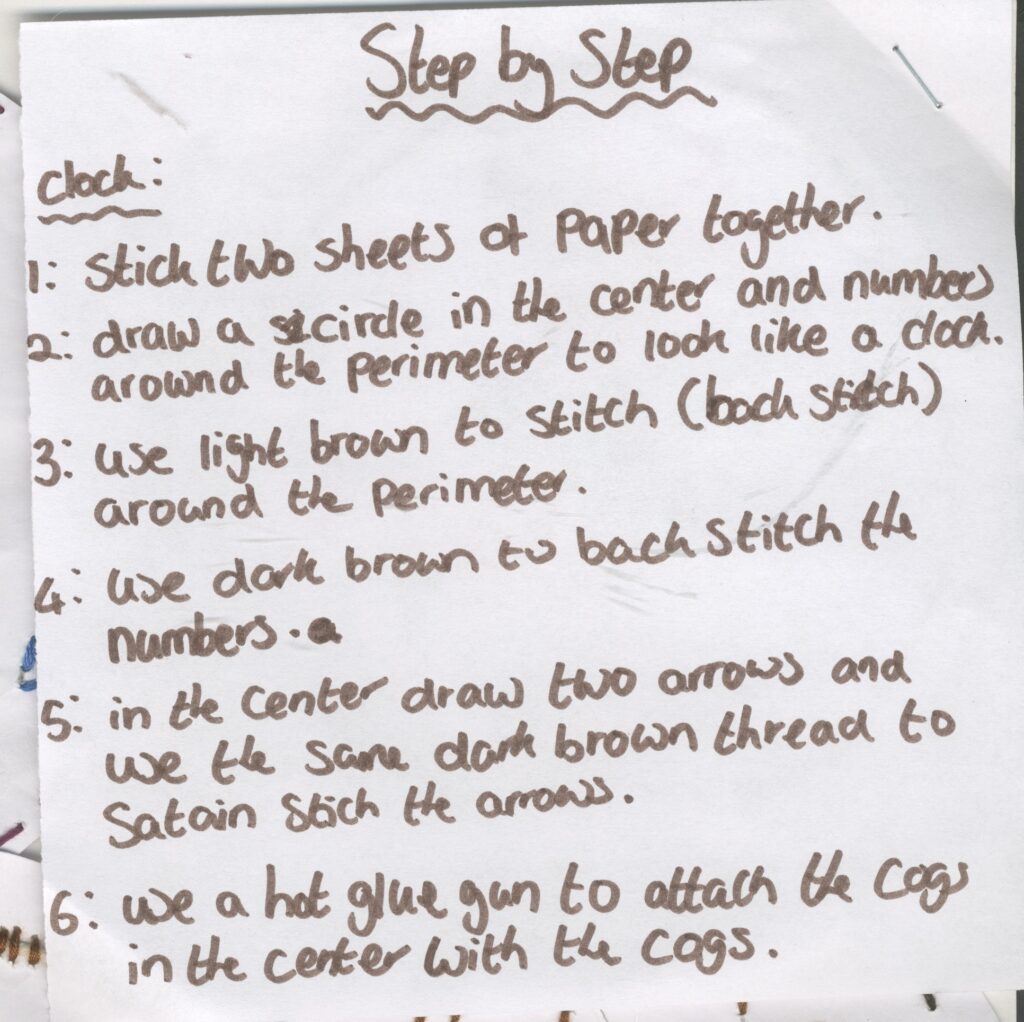 Step by Step
clock:
1: stick two sheets of paper together.
2: draw a circle in the center and numbers
around the perimeter to look like a clock.
3: use light brown to stitch (back stitch)
around the perimeter.
4: use dark brown to back stitch the
numbers.
5: in the center draw two arrows and
use the same dark brown thread to
Satain Stich the arrows.
6: use a hot glue gun to attach the cogs
in the center with the cogs.